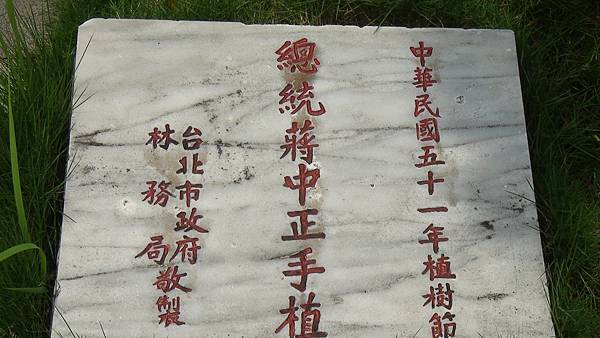 中華民國五十一年植樹節
總統蔣中正手植
台北市政府
林務局敬製